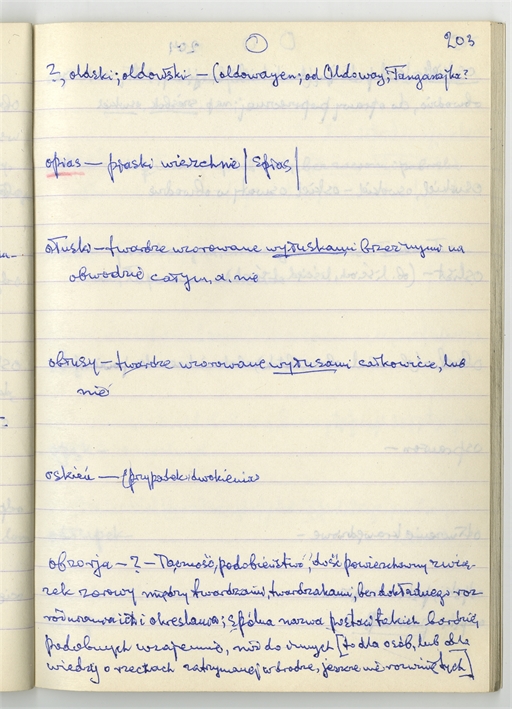 203
?, oldski; oldowski — (oldowayen; od Oldoway; Tanganajka?
opias — piaski wierzchnie | spias |
otuski — twardze wzorowane wyłuskami brzeżnymi na
obwodzie całym, a. nie
obłusy — twardze wzorowane wyłusami całkowicie, lub
nie
oskień — (przypadek: dwokienia
obzorja — ? — Łączność, podobieństwo, dość powierzchowny zwią-
zek zorowy między twardzami, twardzakami, bez dokładnego roz
różniania ich i określania; spólna nazwa postaci takich bardziej
podobnych wzajemnie, niż do innych [to dla osób, lub dla
wiedzy o rzeczach zatrzymanej w drodze, jeszcze nie rozwiniętych]